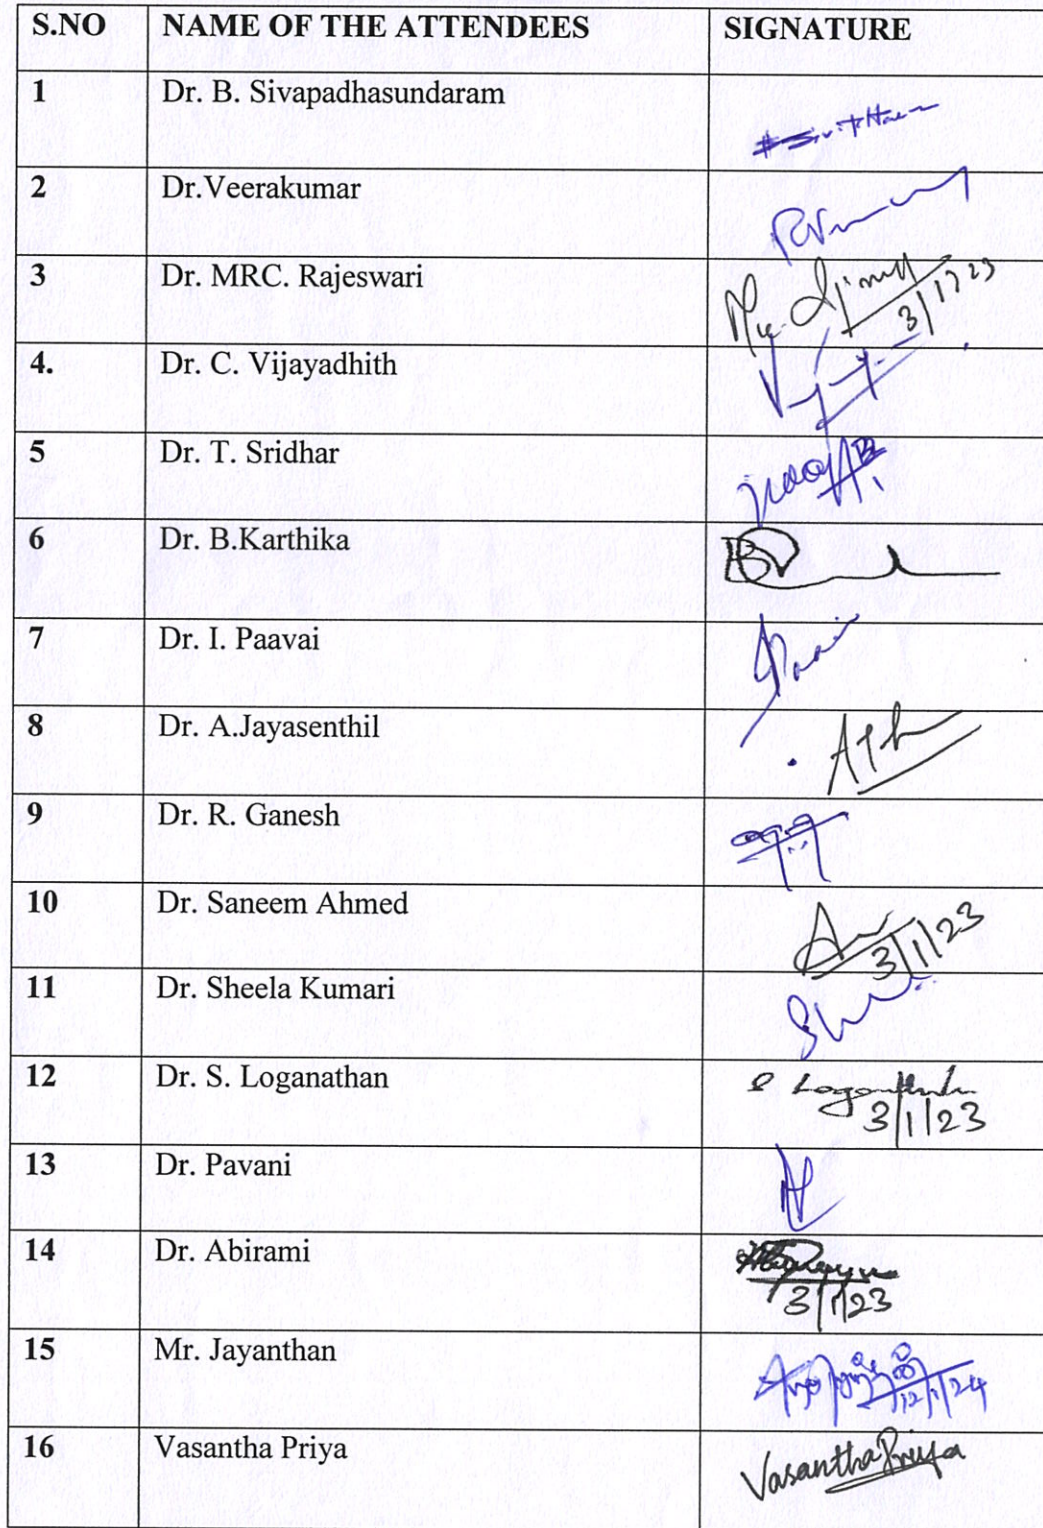 S.NO NAME OF THE ATTENDEES SIGNATURE
1 Dr. B. Sivapadhasundaram
2 Dr.Veerakumar
3 Dr. MRC. Rajeswari 3/1/23
4. Dr. C. Vijayadhith
5 Dr. T. Sridhar
6 Dr. B.Karthika
7 Dr. I. Paavai
8 Dr. A.Jayasenthil
9 Dr. R. Ganesh
10 Dr. Saneem Ahmed 3/1/23
11 Dr. Sheela Kumari
12 Dr. S. Loganathan
3/1/23
13 Dr. Pavani
14 Dr. Abirami
3/1/23
15 Mr. Jayanthan
12/1/24
16 Vasantha Priya Vasantha Priya